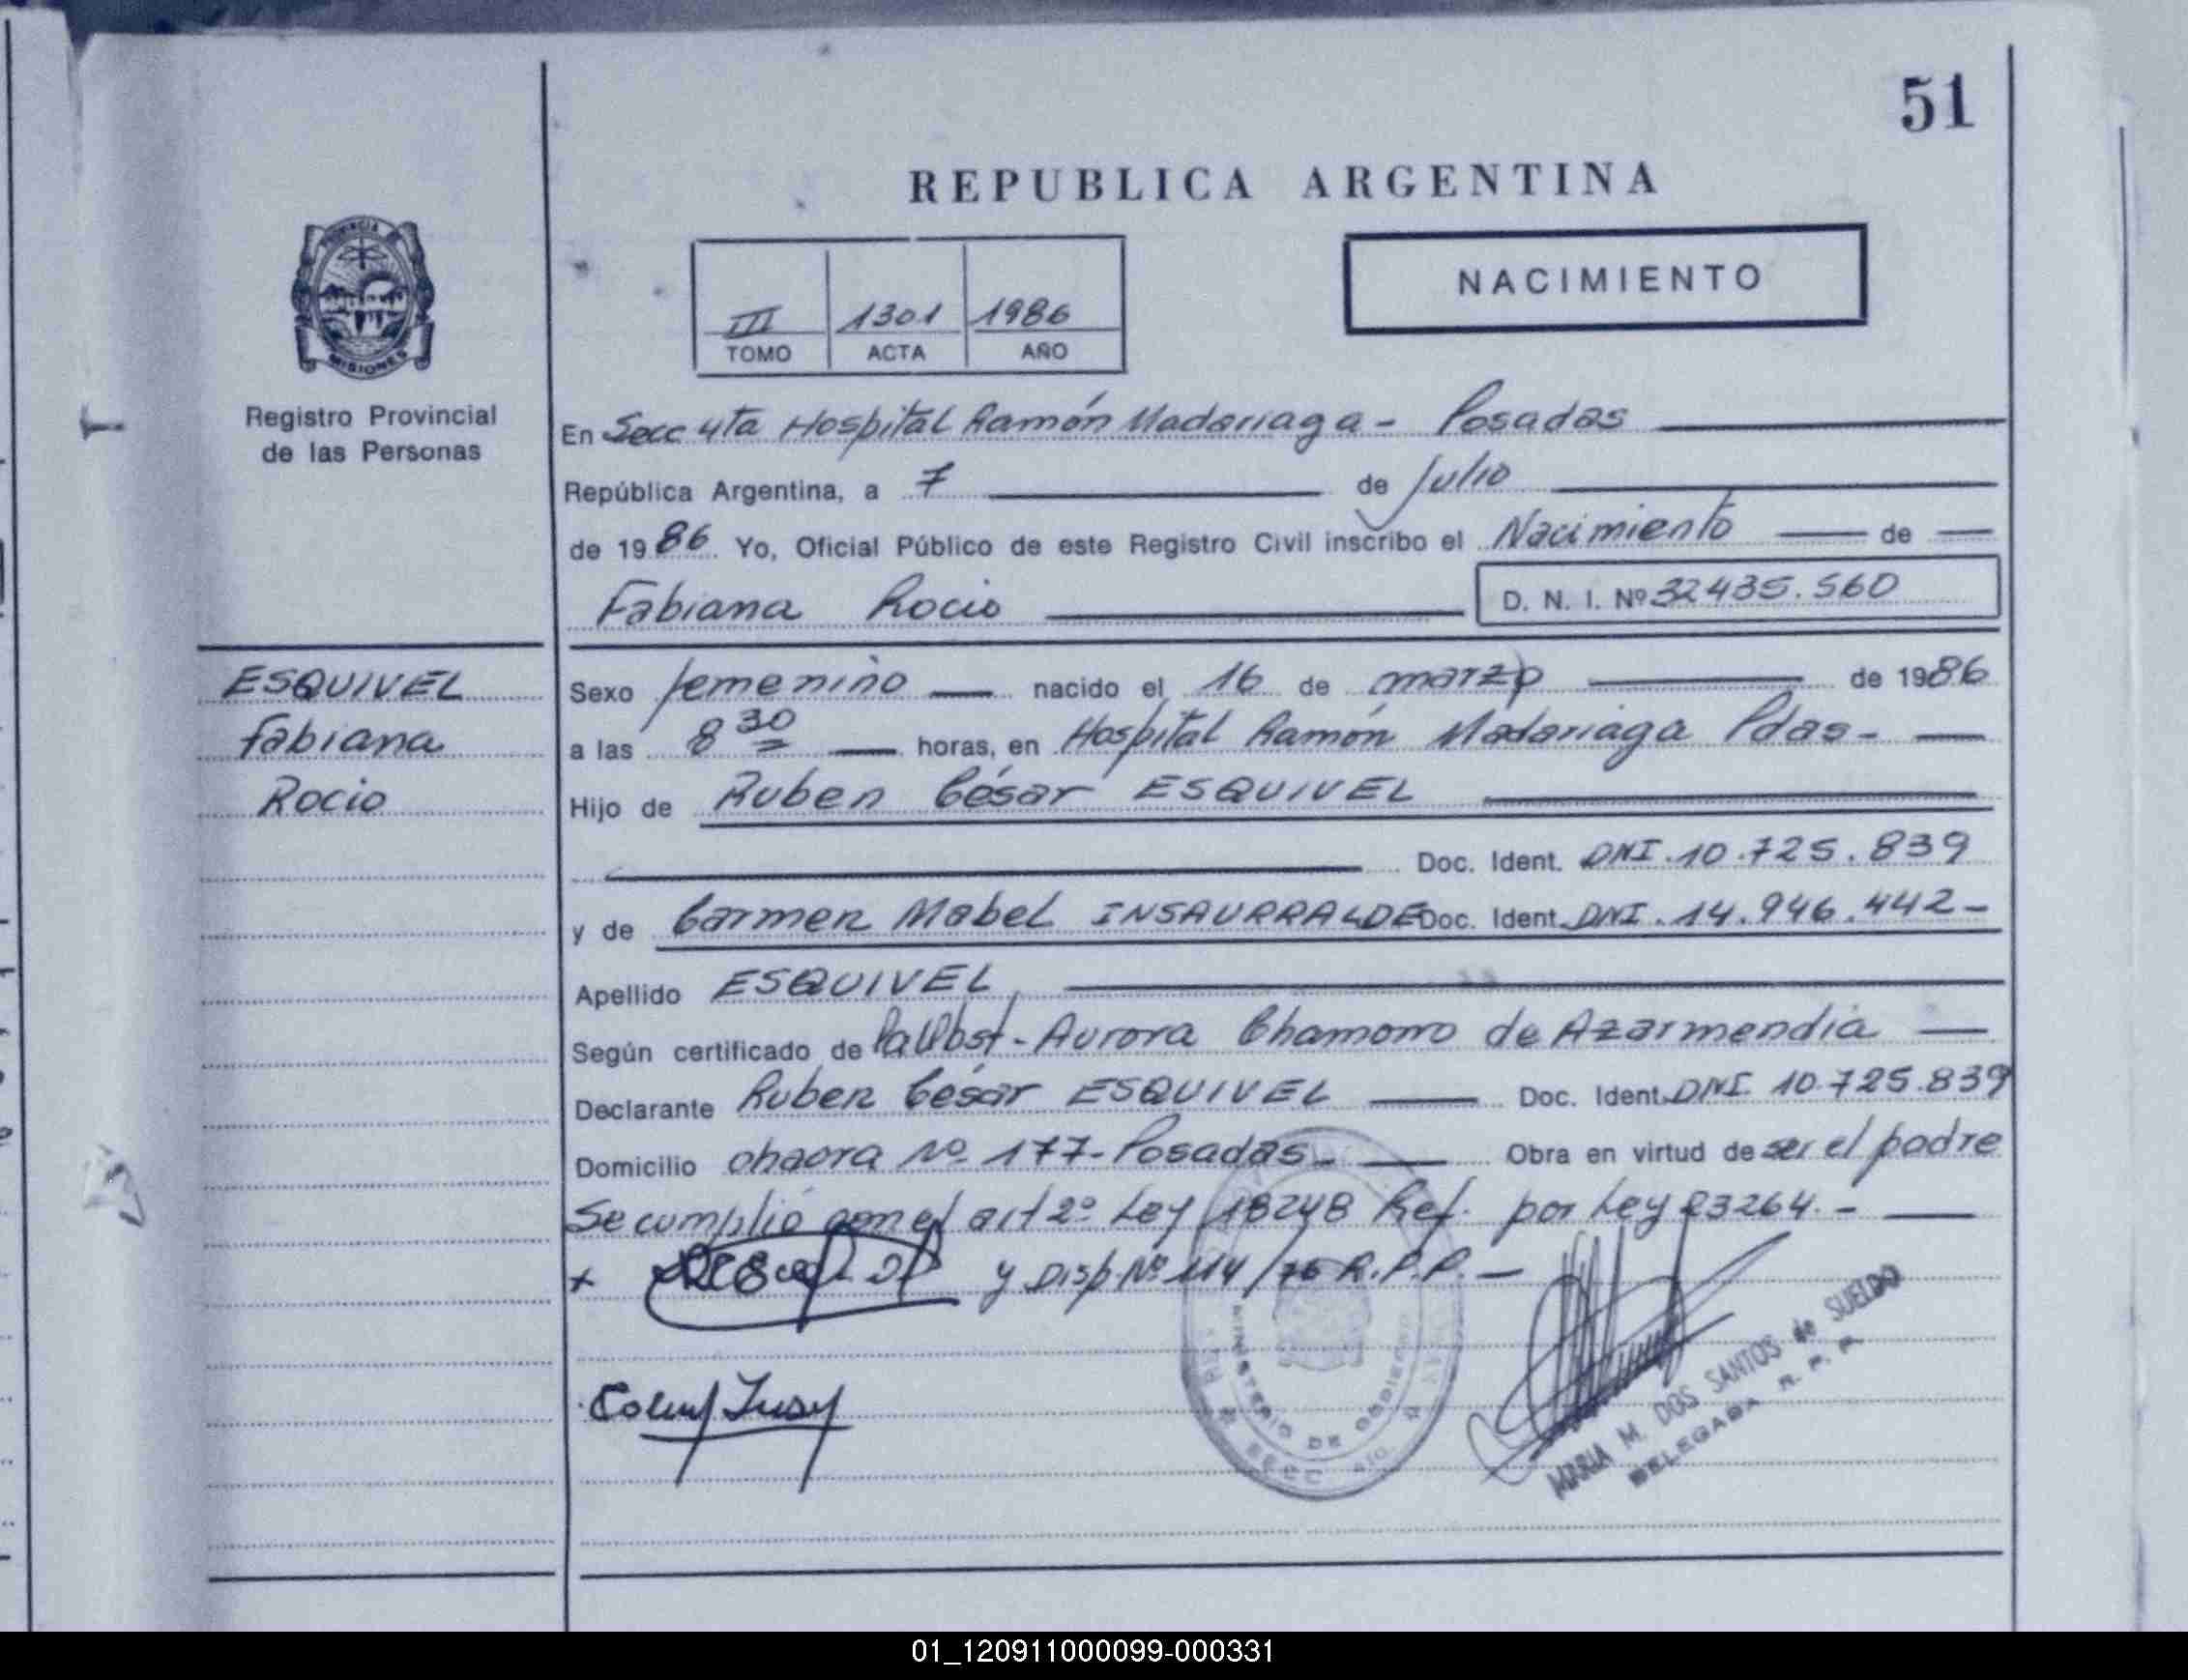 51
REPUBLICA ARGENTINA
PROVINCIA DE
MISIONES
Registro Provincial
de las Personas
III 1301 1986
TOMO ACTA AÑO
NACIMIENTO
En Secc 4ta Hospital Ramón Madariaga - Posadas
República Argentina, a 7 de Julio
de 1986. Yo, Oficial Público de este Registro Civil inscribo el Nacimiento de
Fabiana Rocio D. N. I. Nº 32435.560
ESQUIVEL
Fabiana
Rocio
Sexo femenino nacido el 16 de marzo de 1986
a las 8 30 horas, en Hospital Ramón Madariaga Pdas-
Hijo de Ruben César ESQUIVEL
Doc. Ident. DNI. 10.725.839
y de Carmen Mabel INSAURRALDE Doc. Ident. DNI. 14.946.442-
Apellido ESQUIVEL
Según certificado de Obst- Aurora Chamorro de Azarmendia
Declarante Ruben César ESQUIVEL Doc. Ident. DNI 10.725.839
Domicilio chacra Nº 177- Posadas- Obra en virtud de ser el padre
Se cumplió con el art 2º Ley 18248 Ref. por Ley 23264.-
y Disp. Nº 114/76 R.P.P.-
MINISTERIO DE GOBIERNO
MARIA M. DOS SANTOS de SUELDO
DELEGADA R. P. P.
01_120911000099-000331